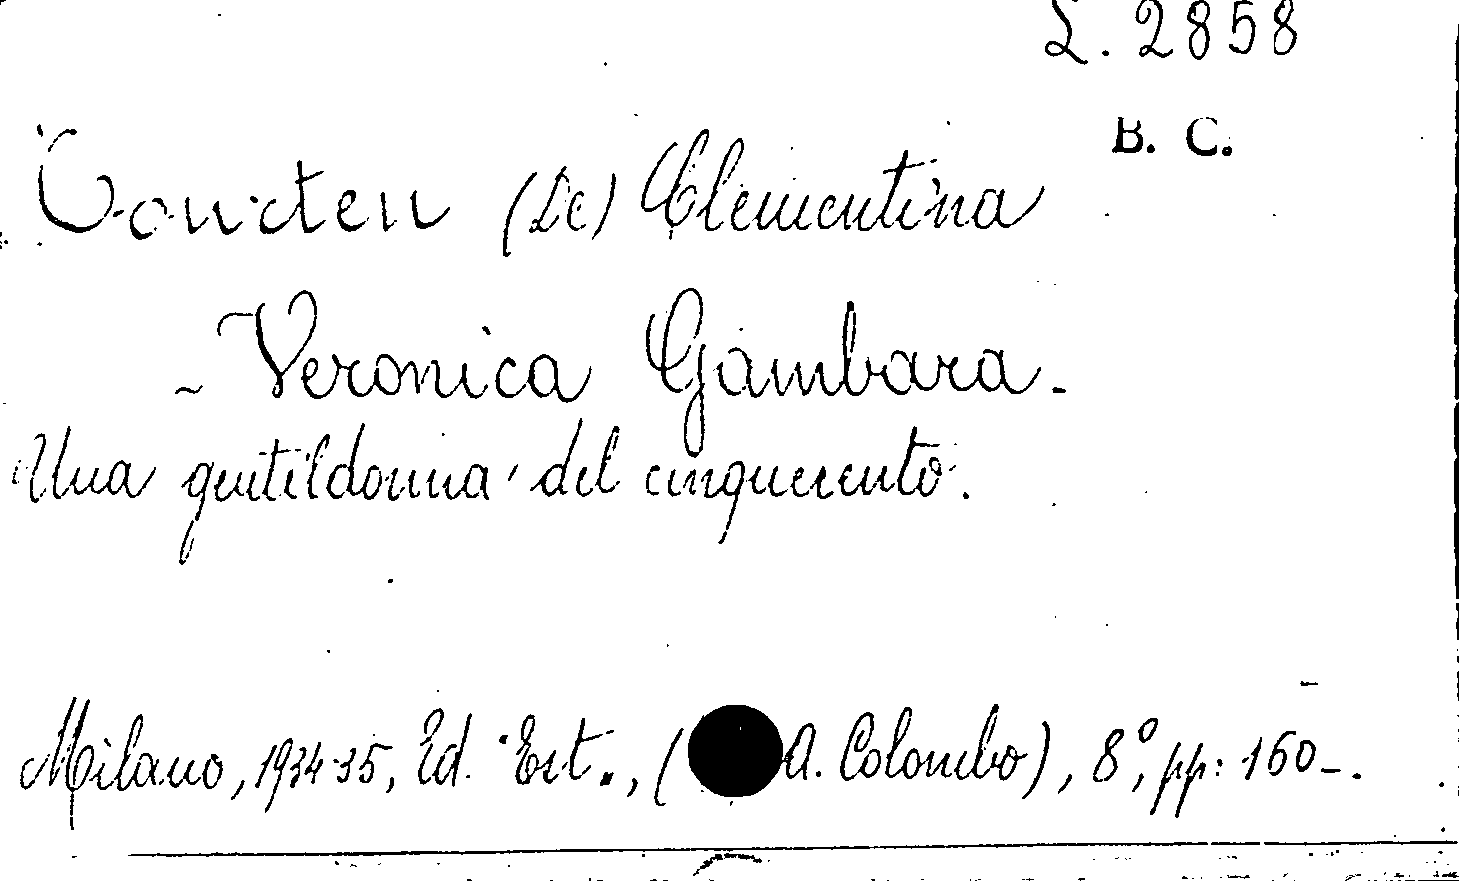 L. 2858
B. C.
Courten (De) Clementina
- Veronica Gambara -
Una gentildonna del cinquecento.
Milano, 1934-35, Ed. Est., ( A. Colombo), 8°, pp: 160-.